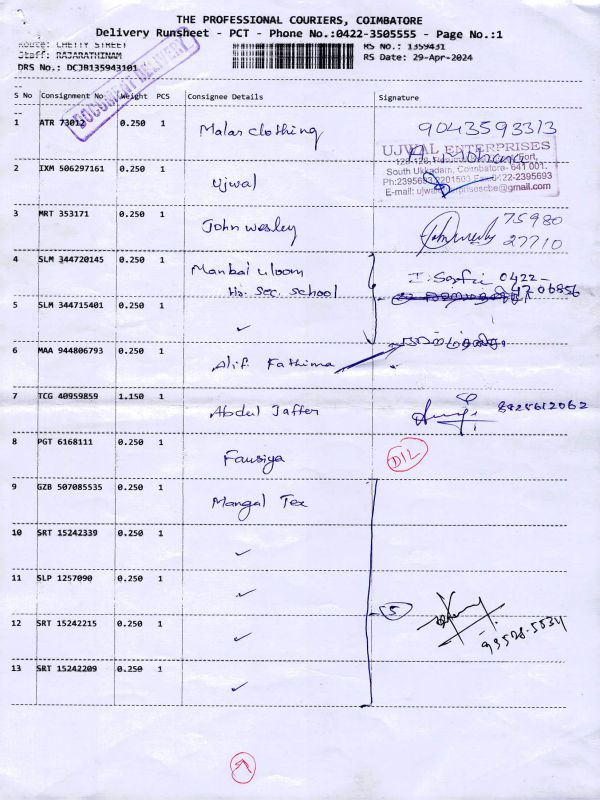 THE PROFESSIONAL COURIERS, COIMBATORE
Delivery Runsheet - PCT - Phone No.:0422-3505555 - Page No.:1
Route: CHETTY STREET
RS No.: 1359431
Staff: RAJARATHINAM
RS Date: 29-Apr-2024
DRS No.: DCJB135943101
DOCUMENT DELIVERY
S No Consignment No Weight PCS Consignee Details Signature
1 ATR 73012 0.250 1 Malar clothing 9043593313
UJWAL ENTERPRISES
South Ukkadam, Coimbatore- 641 001.
2 IXM 506297161 0.250 1 Ujwal
3 MRT 353171 0.250 1 John wesley 75980
27710
4 SLM 344720145 0.250 1 Manbai uloom
Hr. Sec. School
0422-
5 SLM 344715401 0.250 1 ✓
6 MAA 944806793 0.250 1 Alif Fathima
7 TCG 40959859 1.150 1 Abdul Jaffer 8925612062
8 PGT 6168111 0.250 1 Fausiya D/L
9 GZB 507085535 0.250 1 Mangal Tex
10 SRT 15242339 0.250 1 ✓
11 SLP 1257090 0.250 1 ✓
5
12 SRT 15242215 0.250 1 ✓
13 SRT 15242209 0.250 1 ✓